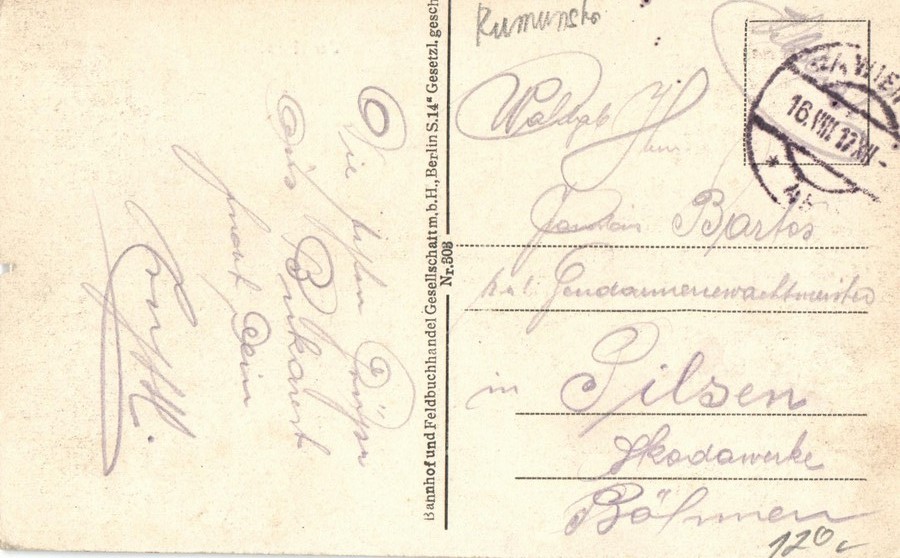 Die besten Grüße
aus Bukarest
Dein
Bannhof und Feldbuchhandel Gesellschaft m.b.H., Berlin S.14" Gesetzl. gesch
Nr. 303
Rumunsko
WIEN
16.VIII.17.XII
Herrn
Bartos
k.u.k. Gendarmeriewachtmeister
in Pilsen
Skodawerke
Böhmen
120,-